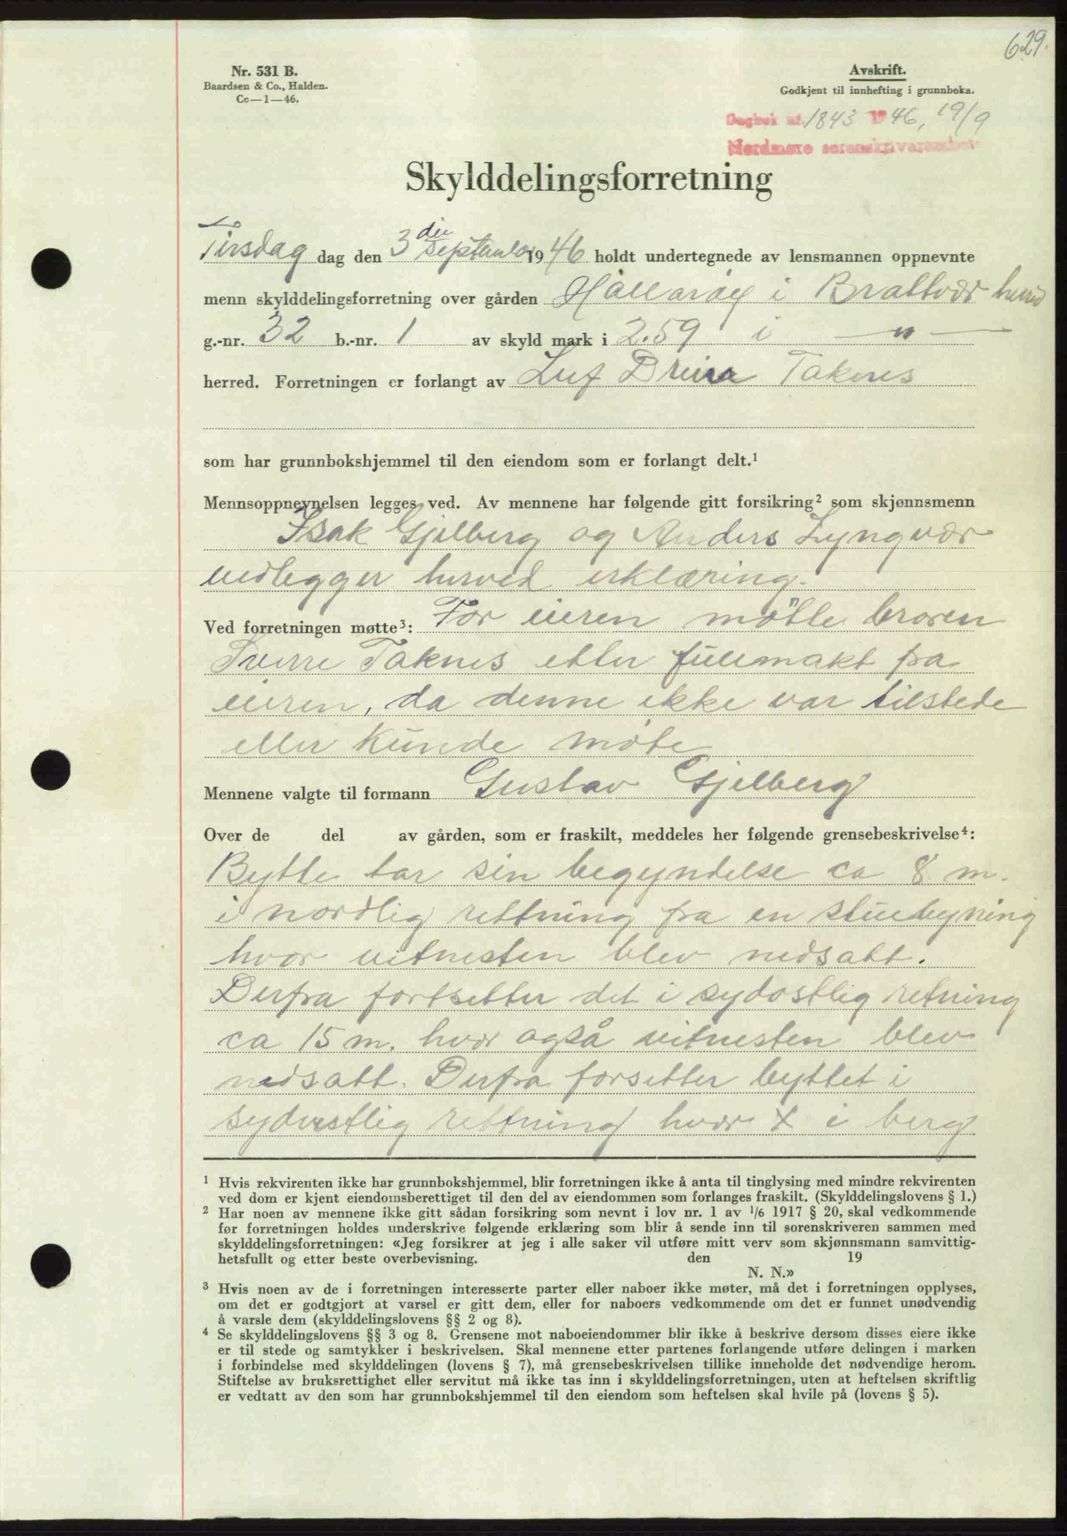 629.
Nr. 531 B.
Baardsen & Co., Halden.
Cc—1—46.
Avskrift.
Godkjent til innhefting i grunnboka.
Dagbok nr. 1843 1946, 19/9
Nordmøre sorenskriverembete
Skylddelingsforretning
Tirsdag dag den 3 die September 1946 holdt undertegnede av lensmannen oppnevnte
menn skylddelingsforretning over gården Hallarøy i Brattvær herred
g.-nr. 32 b.-nr. 1 av skyld mark i 2.59 i — " —
herred. Forretningen er forlangt av Taknes
som har grunnbokshjemmel til den eiendom som er forlangt delt.¹
Mennsoppnevnelsen legges ved. Av mennene har følgende gitt forsikring² som skjønnsmenn
Isak Gjelberg og Anders Lyngvær
vedlegger herved erklæring.
Ved forretningen møtte³: For eieren møtte broren
Sverre Taknes etter fullmakt fra
eieren, da denne ikke var tilstede
eller kunde møte
Mennene valgte til formann Gustav Gjelberg
Over de del av gården, som er fraskilt, meddeles her følgende grensebeskrivelse⁴:
Bytte tar sin begyndelse ca 8 m.
i nordlig rettning fra en stuebyning
hvor vitnesten blev nedsatt.
Derfra fortsetter det i sydostlig retning
ca 15 m. hvor også vitnesten blev
nedsatt. Derfra forsetter byttet i
sydvestlig rettning hvor X i berg
¹ Hvis rekvirenten ikke har grunnbokshjemmel, blir forretningen ikke å anta til tinglysing med mindre rekvirenten
ved dom er kjent eiendomsberettiget til den del av eiendommen som forlanges fraskilt. (Skylddelingslovens § 1.)
² Har noen av mennene ikke gitt sådan forsikring som nevnt i lov nr. 1 av 1/6 1917 § 20, skal vedkommende
før forretningen holdes underskrive følgende erklæring som blir å sende inn til sorenskriveren sammen med
skylddelingsforretningen: «Jeg forsikrer at jeg i alle saker vil utføre mitt verv som skjønnsmann samvittig-
hetsfullt og etter beste overbevisning. den 19
N. N.»
³ Hvis noen av de i forretningen interesserte parter eller naboer ikke møter, må det i forretningen opplyses,
om det er godtgjort at varsel er gitt dem, eller for naboers vedkommende om det er funnet unødvendig
å varsle dem (skylddelingslovens §§ 2 og 8).
⁴ Se skylddelingslovens §§ 3 og 8. Grensene mot naboeiendommer blir ikke å beskrive dersom disses eiere ikke
er til stede og samtykker i beskrivelsen. Skal mennene etter partenes forlangende utføre delingen i marken
i forbindelse med skylddelingen (lovens § 7), må grensebeskrivelsen tillike inneholde det nødvendige herom.
Stiftelse av bruksrettighet eller servitut må ikke tas inn i skylddelingsforretningen, uten at heftelsen skriftlig
er vedtatt av den som har grunnbokshjemmel til den eiendom som heftelsen skal hvile på (lovens § 5).